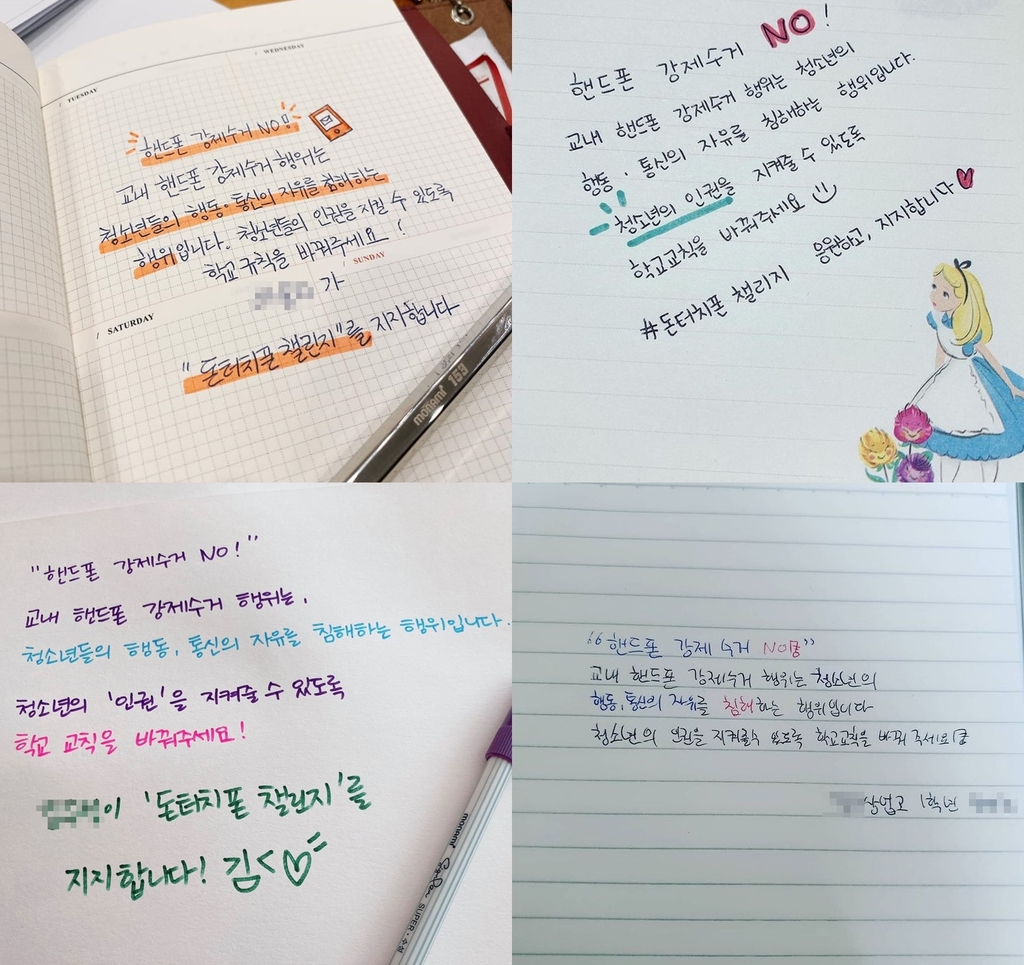 WEDNESDAY
TUESDAY
핸드폰 강제수거 NO!!
교내 핸드폰 강제수거 행위는
청소년들의 행동·통신의 자유를 침해하는
행위입니다. 청소년들의 인권을 지킬 수 있도록
학교 규칙을 바꿔주세요!
SUNDAY
가
SATURDAY
"돈터치폰 챌린지"를 지지합니다
monami 153
핸드폰 강제수거 NO!
교내 핸드폰 강제수거 행위는 청소년의
행동·통신의 자유를 침해하는 행위입니다.
청소년의 인권을 지켜줄 수 있도록
학교교칙을 바꿔주세요
응원하고, 지지합니다
#돈터치폰 챌리지
"핸드폰 강제수거 NO!"
교내 핸드폰 강제수거 행위는,
청소년들의 행동, 통신의 자유를 침해하는 행위입니다.
청소년의 '인권'을 지켜줄 수 있도록
학교 교칙을 바꿔주세요!
이 '돈터치폰 챌린지'를
지지합니다! 김<
monami SUPER
"핸드폰 강제 수거 NO!!"
교내 핸드폰 강제수거 행위는 청소년의
행동, 통신의 자유를 침해하는 행위입니다
청소년의 인권을 지켜줄수 있도록 학교교칙을 바꿔 주세요!!
상업고 1학년